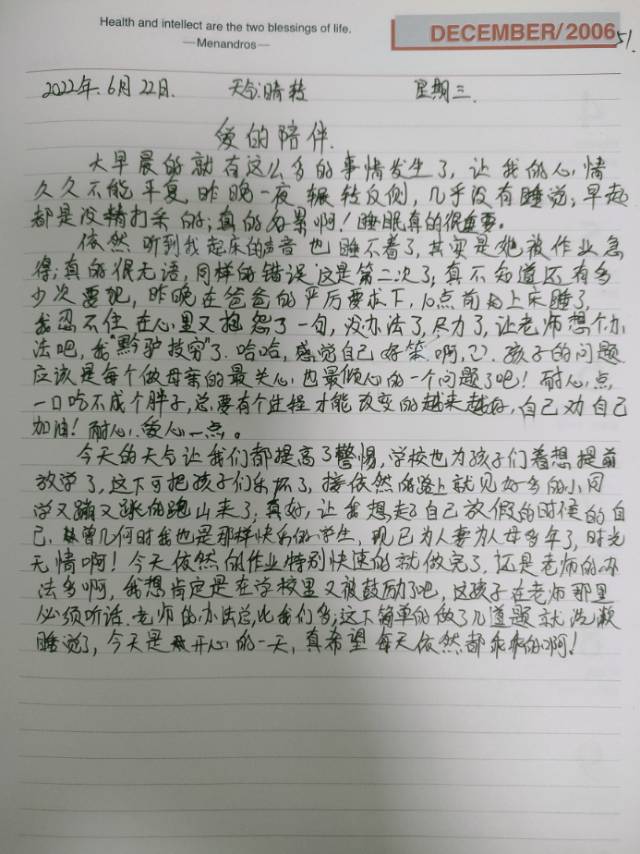 Health and intellect are the two blessings of life.
—Menandros—
DECEMBER/2006
51.
2022年.6月22日. 天气:晴转 星期三.
爱的陪伴.
大早晨的就有这么多的事情发生了,让我的心情
久久不能平复,昨晚一夜辗转反侧,几乎没有睡觉,早起
都是没精打采的;真的好累啊!睡眠真的很重要。
依然听到我起床的声音也睡不着了,其实是她被作业急
得;真的很无语,同样的错误这是第二次了,真不知道还有多
少次要犯,昨晚在爸爸的严厉要求下,10点前上床睡了,
我忍不住在心里又抱怨了一句,没办法了,尽力了,让老师想个办
法吧,我"黔驴技穷"了.哈哈,感觉自己好笨啊,孩子的问题
应该是每个做母亲的最关心也最倾心的一个问题了吧!耐心点,
一口吃不成个胖子,总要有个过程才能改变的越来越好,自己劝自己
加油!耐心.爱心一点。
今天的天气让我们都提高了警惕,学校也为孩子们着想提前
放学了,这下可把孩子们乐坏了,接依然的路上就见好多的小同
学又蹦又跳的跑出来了;真好,让我想起了自己放假的时候的自
己,曾几何时我也是那样快乐的学生,现已为人妻为人母多年了,时光
无情啊!今天依然的作业特别快速的就做完了,还是老师的办
法多啊,我想肯定是在学校里又被鼓励了吧,这孩子在老师那里
必须听话.老师的办法总比我们多;这下简单的做了几道题就洗漱
睡觉了,今天是开心的一天,真希望每天依然都乖乖的啊!